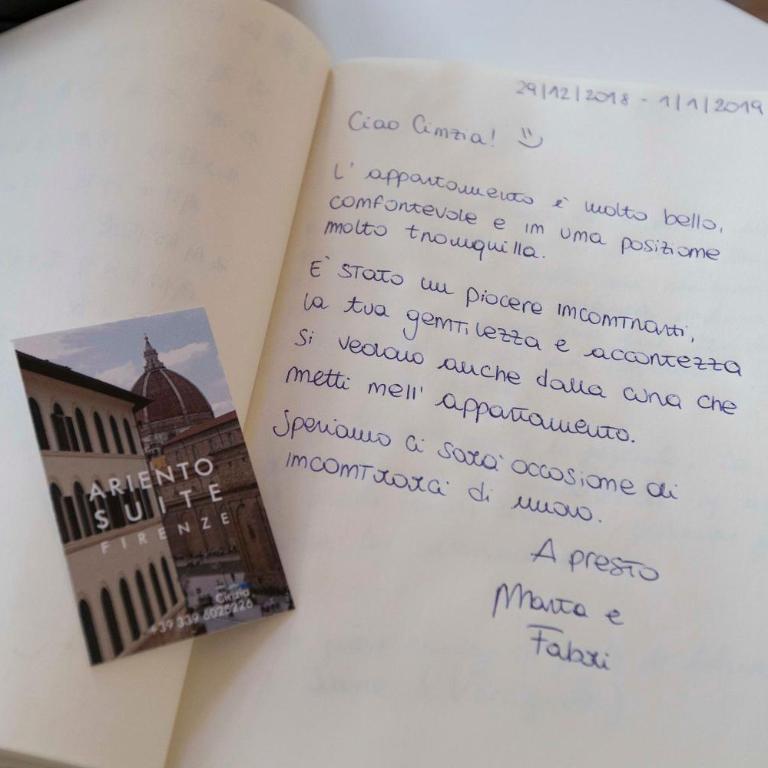 29/12/2018 - 1/1/2019
Ciao Cinzia! :)
L'appartamento è molto bello,
comfortevole e in una posizione
molto tranquilla.
E' stato un piacere incontrarti,
la tua gentilezza e accortezza
si vedono anche dalla cura che
metti nell'appartamento.
Speriamo ci sarà occasione di
incontrarci di nuovo.
A presto
Marta e
Fabri
ARIENTO
SUITE
FIRENZE
Cinzia
+39 339 6025226